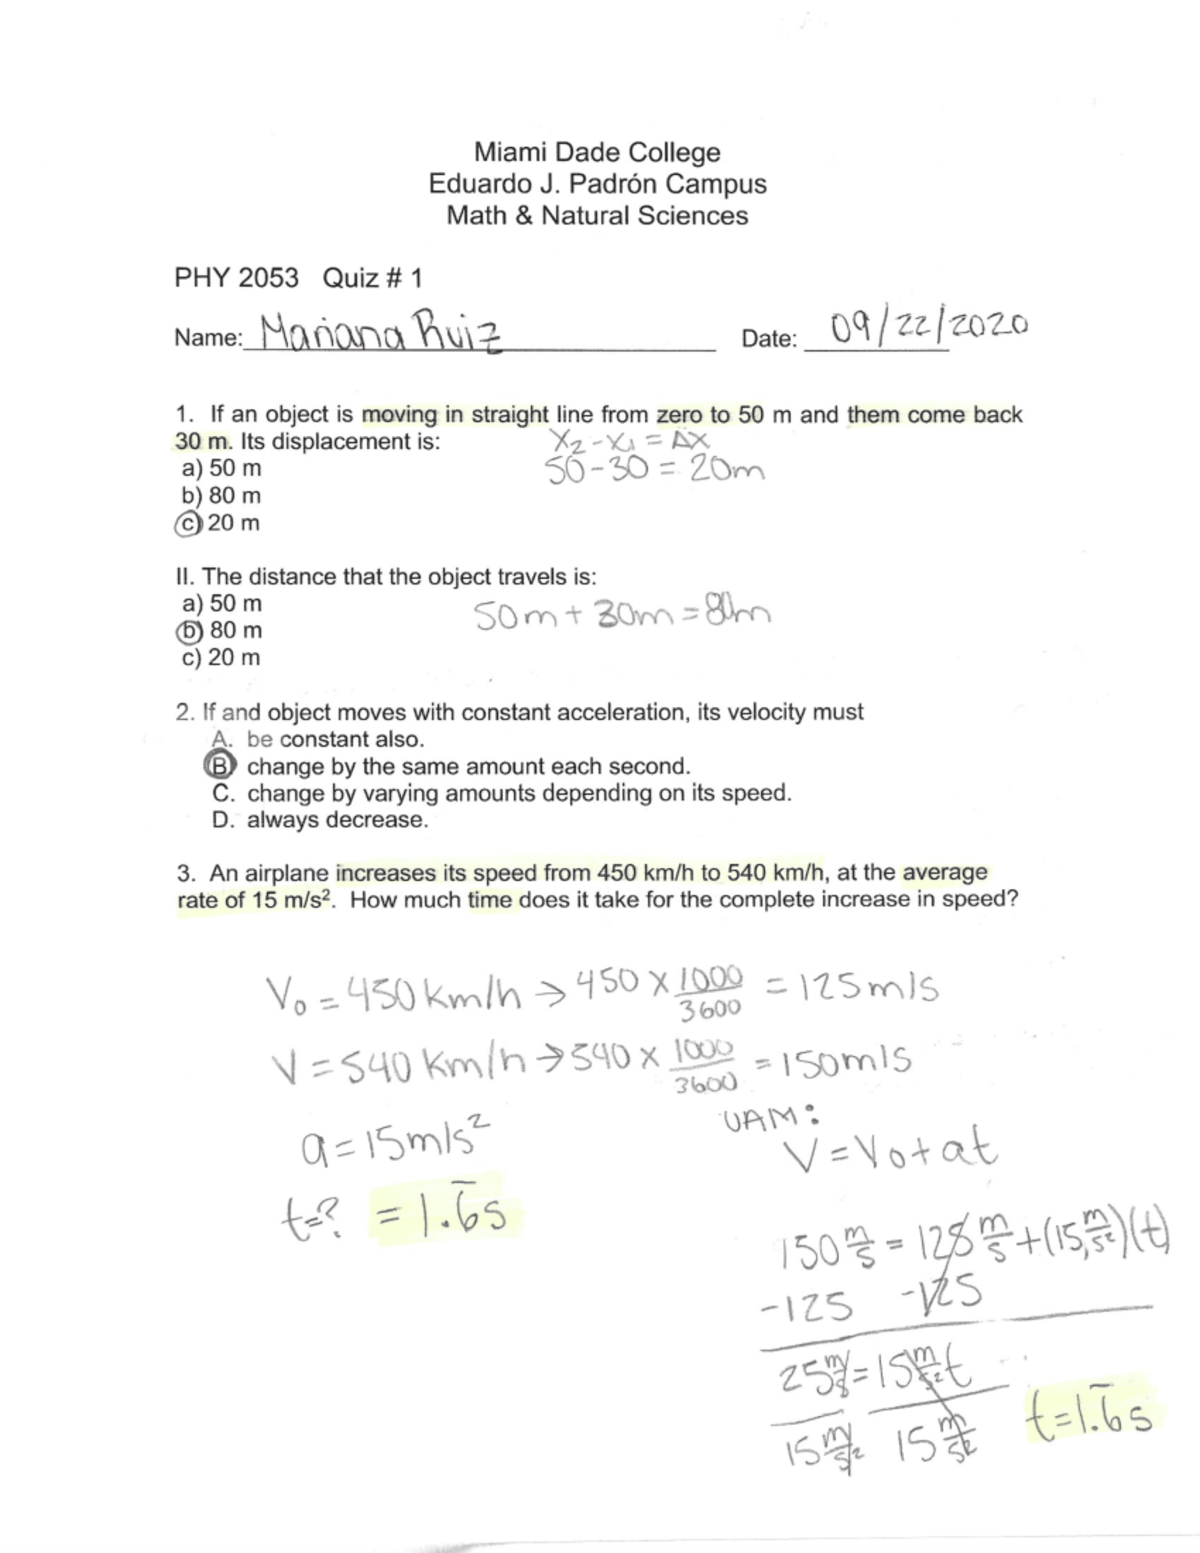 Miami Dade College
Eduardo J. Padrón Campus
Math & Natural Sciences
PHY 2053 Quiz # 1
Name: Mariana Ruiz Date: 09/22/2020
1. If an object is moving in straight line from zero to 50 m and them come back
30 m. Its displacement is:
X₂-X₁ = ΔX
a) 50 m
50-30 = 20m
b) 80 m
c) 20 m
II. The distance that the object travels is:
a) 50 m
50m + 30m = 80m
b) 80 m
c) 20 m
2. If and object moves with constant acceleration, its velocity must
A. be constant also.
B. change by the same amount each second.
C. change by varying amounts depending on its speed.
D. always decrease.
3. An airplane increases its speed from 450 km/h to 540 km/h, at the average
rate of 15 m/s². How much time does it take for the complete increase in speed?
V₀ = 450 km/h → 450 x 1000/3600 = 125 m/s
V = 540 km/h → 540 x 1000/3600 = 150 m/s
a = 15 m/s²
t=? = 1.6̅s
UAM:
V = V₀ + at
150 m/s = 125 m/s + (15 m/s²)(t)
-125 -125
25 m/s = 15 m/s² t
15 m/s² 15 m/s²
t=1.6̅s